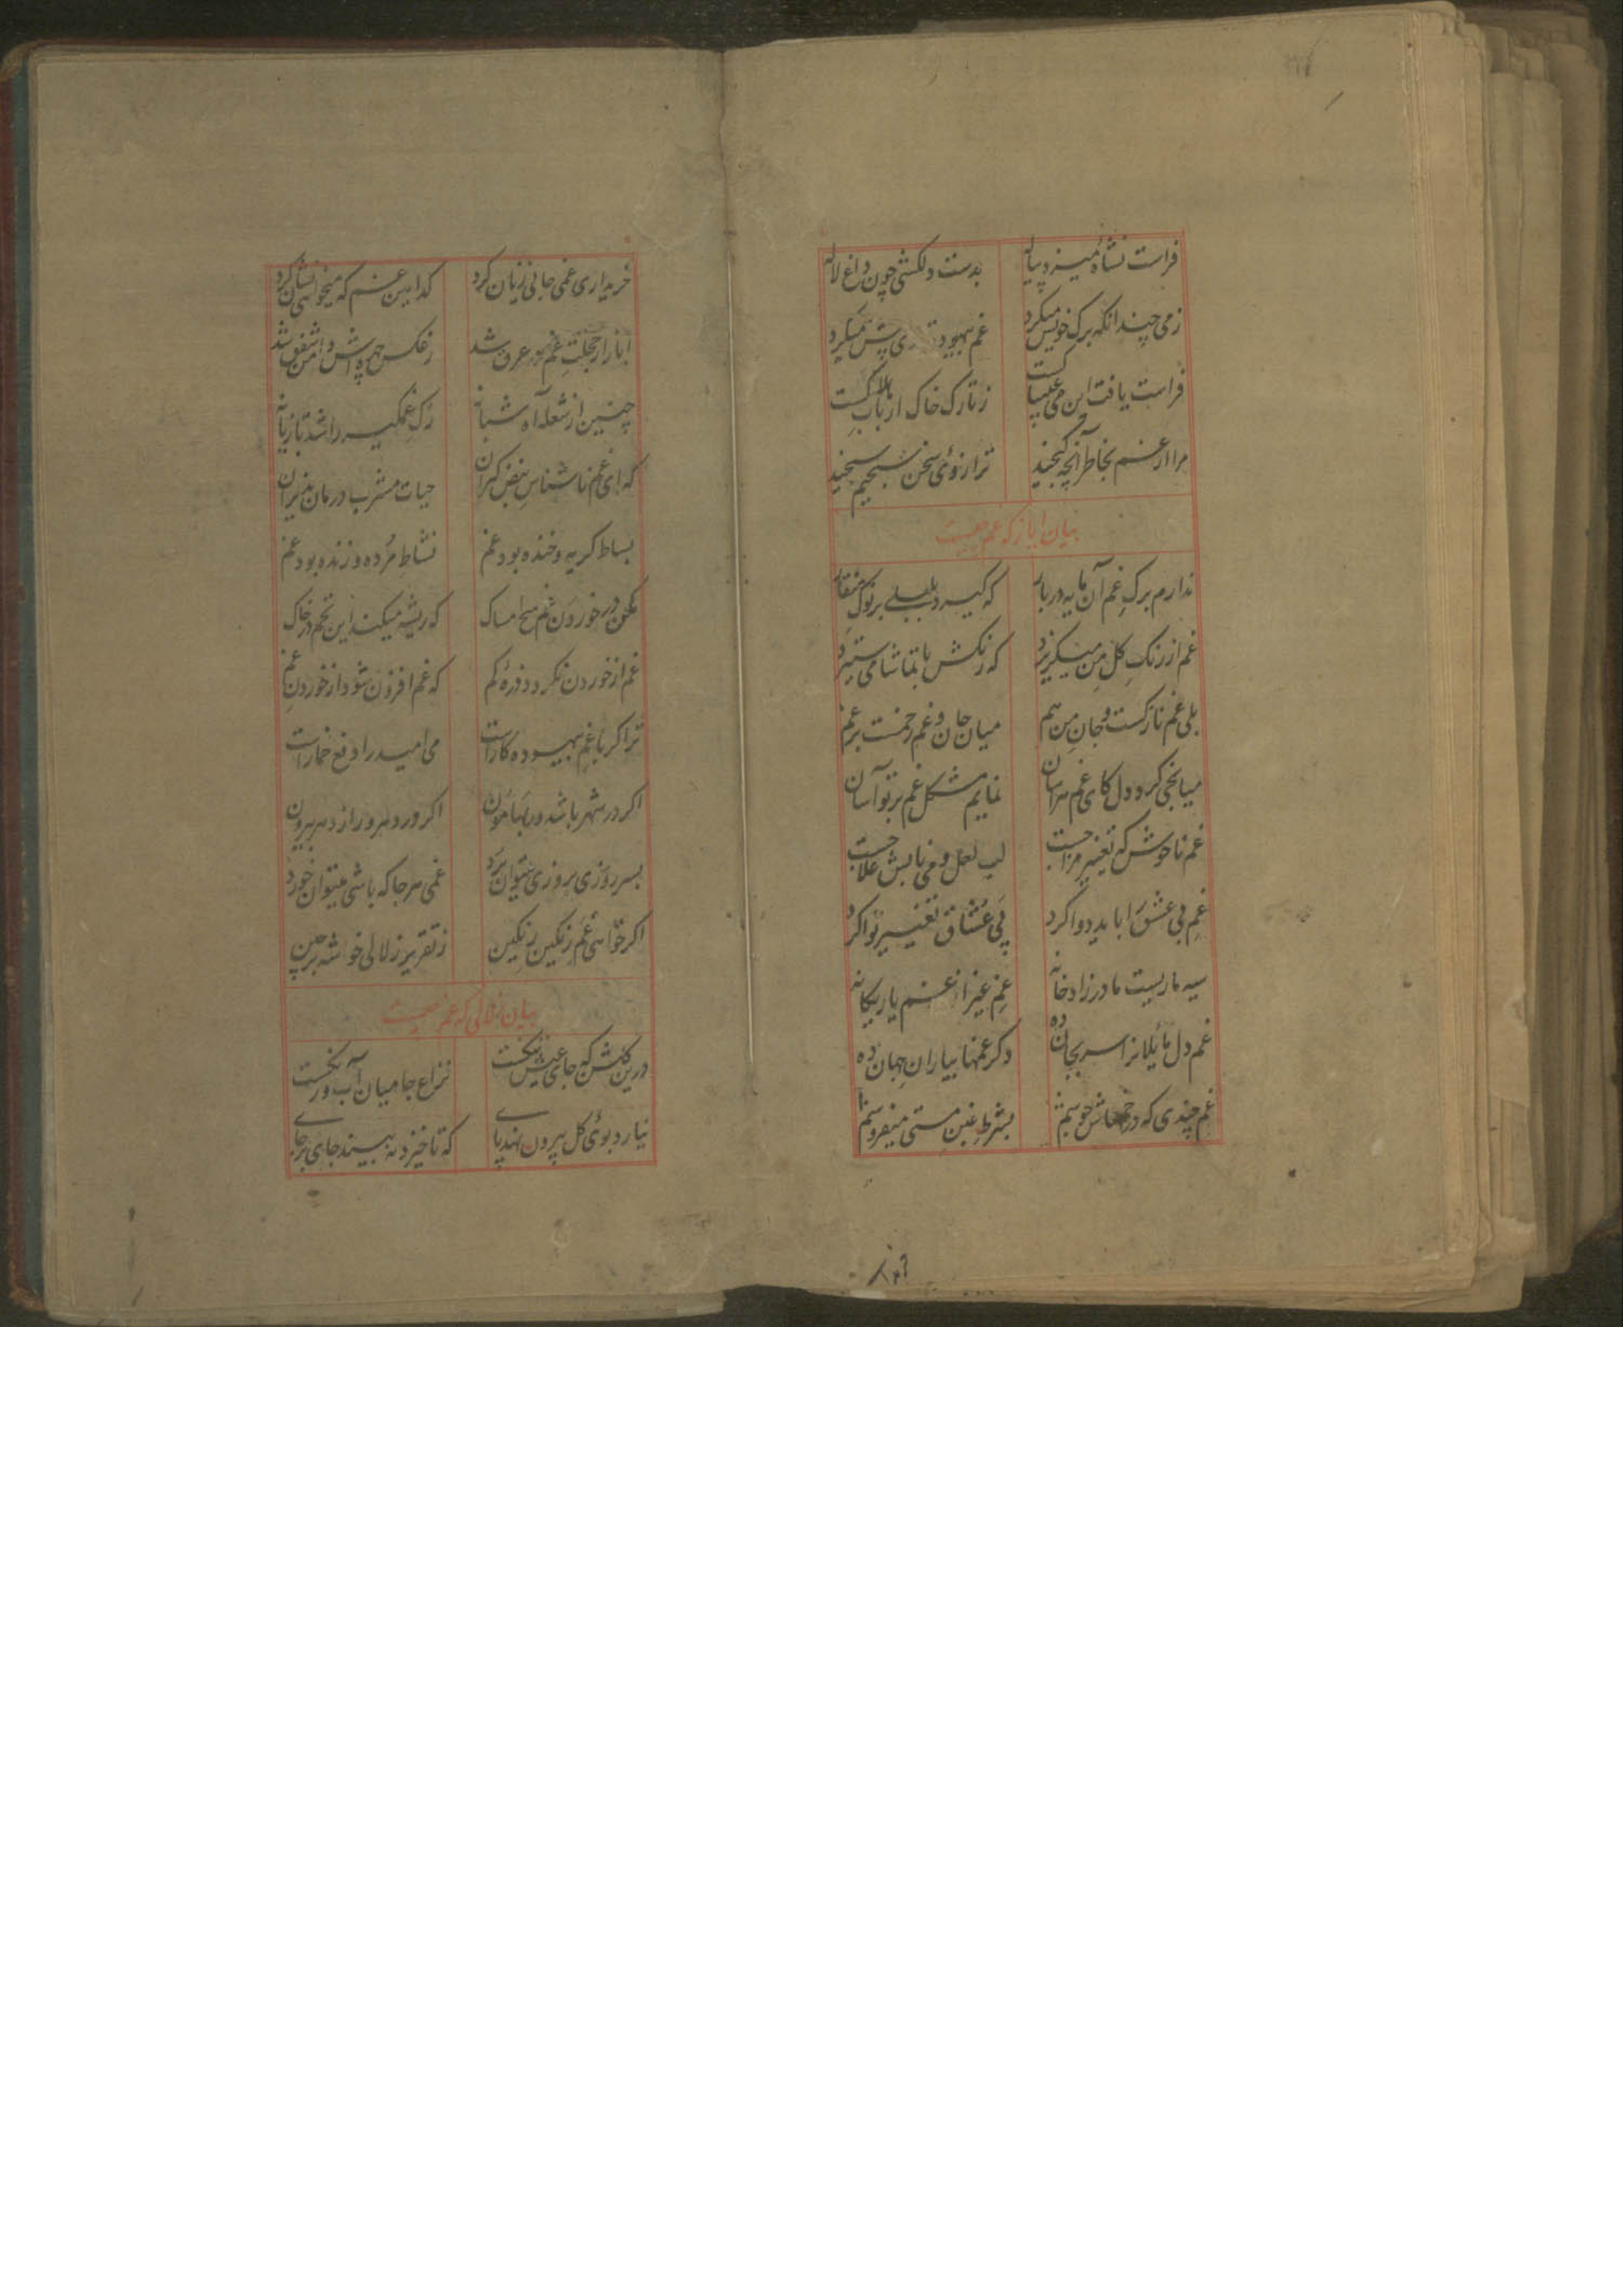 فراست نشاهٔ میزد پیاله بدست دلکشی چون داغ لاله
زمی چند انکه برک خویش میکرد غم بیهوده را پی پش میکرد
فراست یافت این می بی کست ز تارک خاک ارباب بلا کست
مرا از غم بخاطر آنچه کنجید ترازوی سخن سنجیم سنجید
بیان ایاز که غم چیست
ندارم برک غم آن مایه در بار که کیرد بلبلی بر نوک منقار
غم از رنک کل من میکریزد که رنکش با تماشا می ستیزد
بلی غم نازکست و جان من هم میان جان و غم رحمست بر غم
میانجی کرد دل کای غم هراسان نمایم مشکل غم بر تو آسان
غم ناخوش که تغییر مزاجست لب لعل و می نابش علاجست
غم بی عشق را باید دوا کرد پی عشاق تغییر نوا کرد
سیه ماریست مادرزاد خانه غم غیر از غم یار یکانه
غم دل مائلانرا سر بجان ده دکر غمها بیاران جهان ده
غم چندی که در جوشم بشرط غبن مستی میفروشم
خریداری غمی جانی زیان کرد کدامین غم که میخواهی نشان کرد
ایاز از خجلت غم در عرق شد ز عکس چهره اش دامن شفق شد
چنین از شعلهٔ آه شبانه رک غمکیر را شد تازیانه
که ای غم ناشناس نبض کیران حیات مشرب درمان پذیران
بساط کریه و خنده بود غم نشاط مرده و زنده بود غم
مکن در خوردن غم هیچ امساک که ریشه میکند این تخم در خاک
غم از خوردن نکردد ذرهٔ کم که غم افزون شود از خوردن غم
ترا کر با غم بیهوده کارست می امید را دفع خمارست
اکر در شهر باشد ور بهامون اکر در دهر ور از دهر بیرون
بسر روزی بروزی میتوان برد غمی هر جا که باشی میتوان خورد
اکر خواهی غم رنکین رنکین ز تقریر زلالی خوشه برچین
بیان زلالی که غم چیست
درین کلشن که جای عیش تنکست نزاع جا میان آب و رنکست
نیارد بوی کل بیرون نهد پای که تا خیزد نه بیند جای بر جای